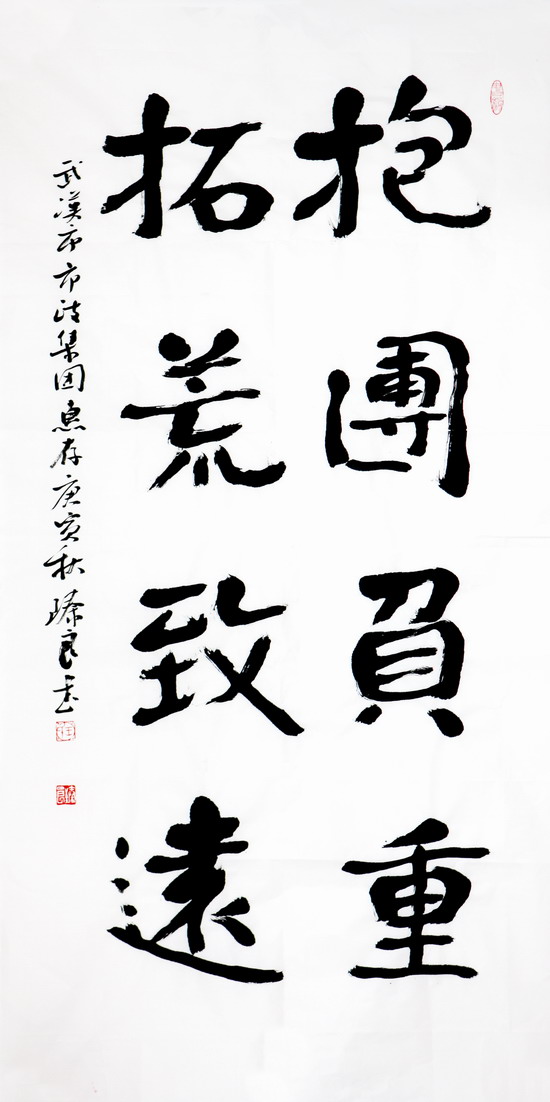 抱團負重
拓荒致遠
武漢市市政集团惠存庚寅秋 良